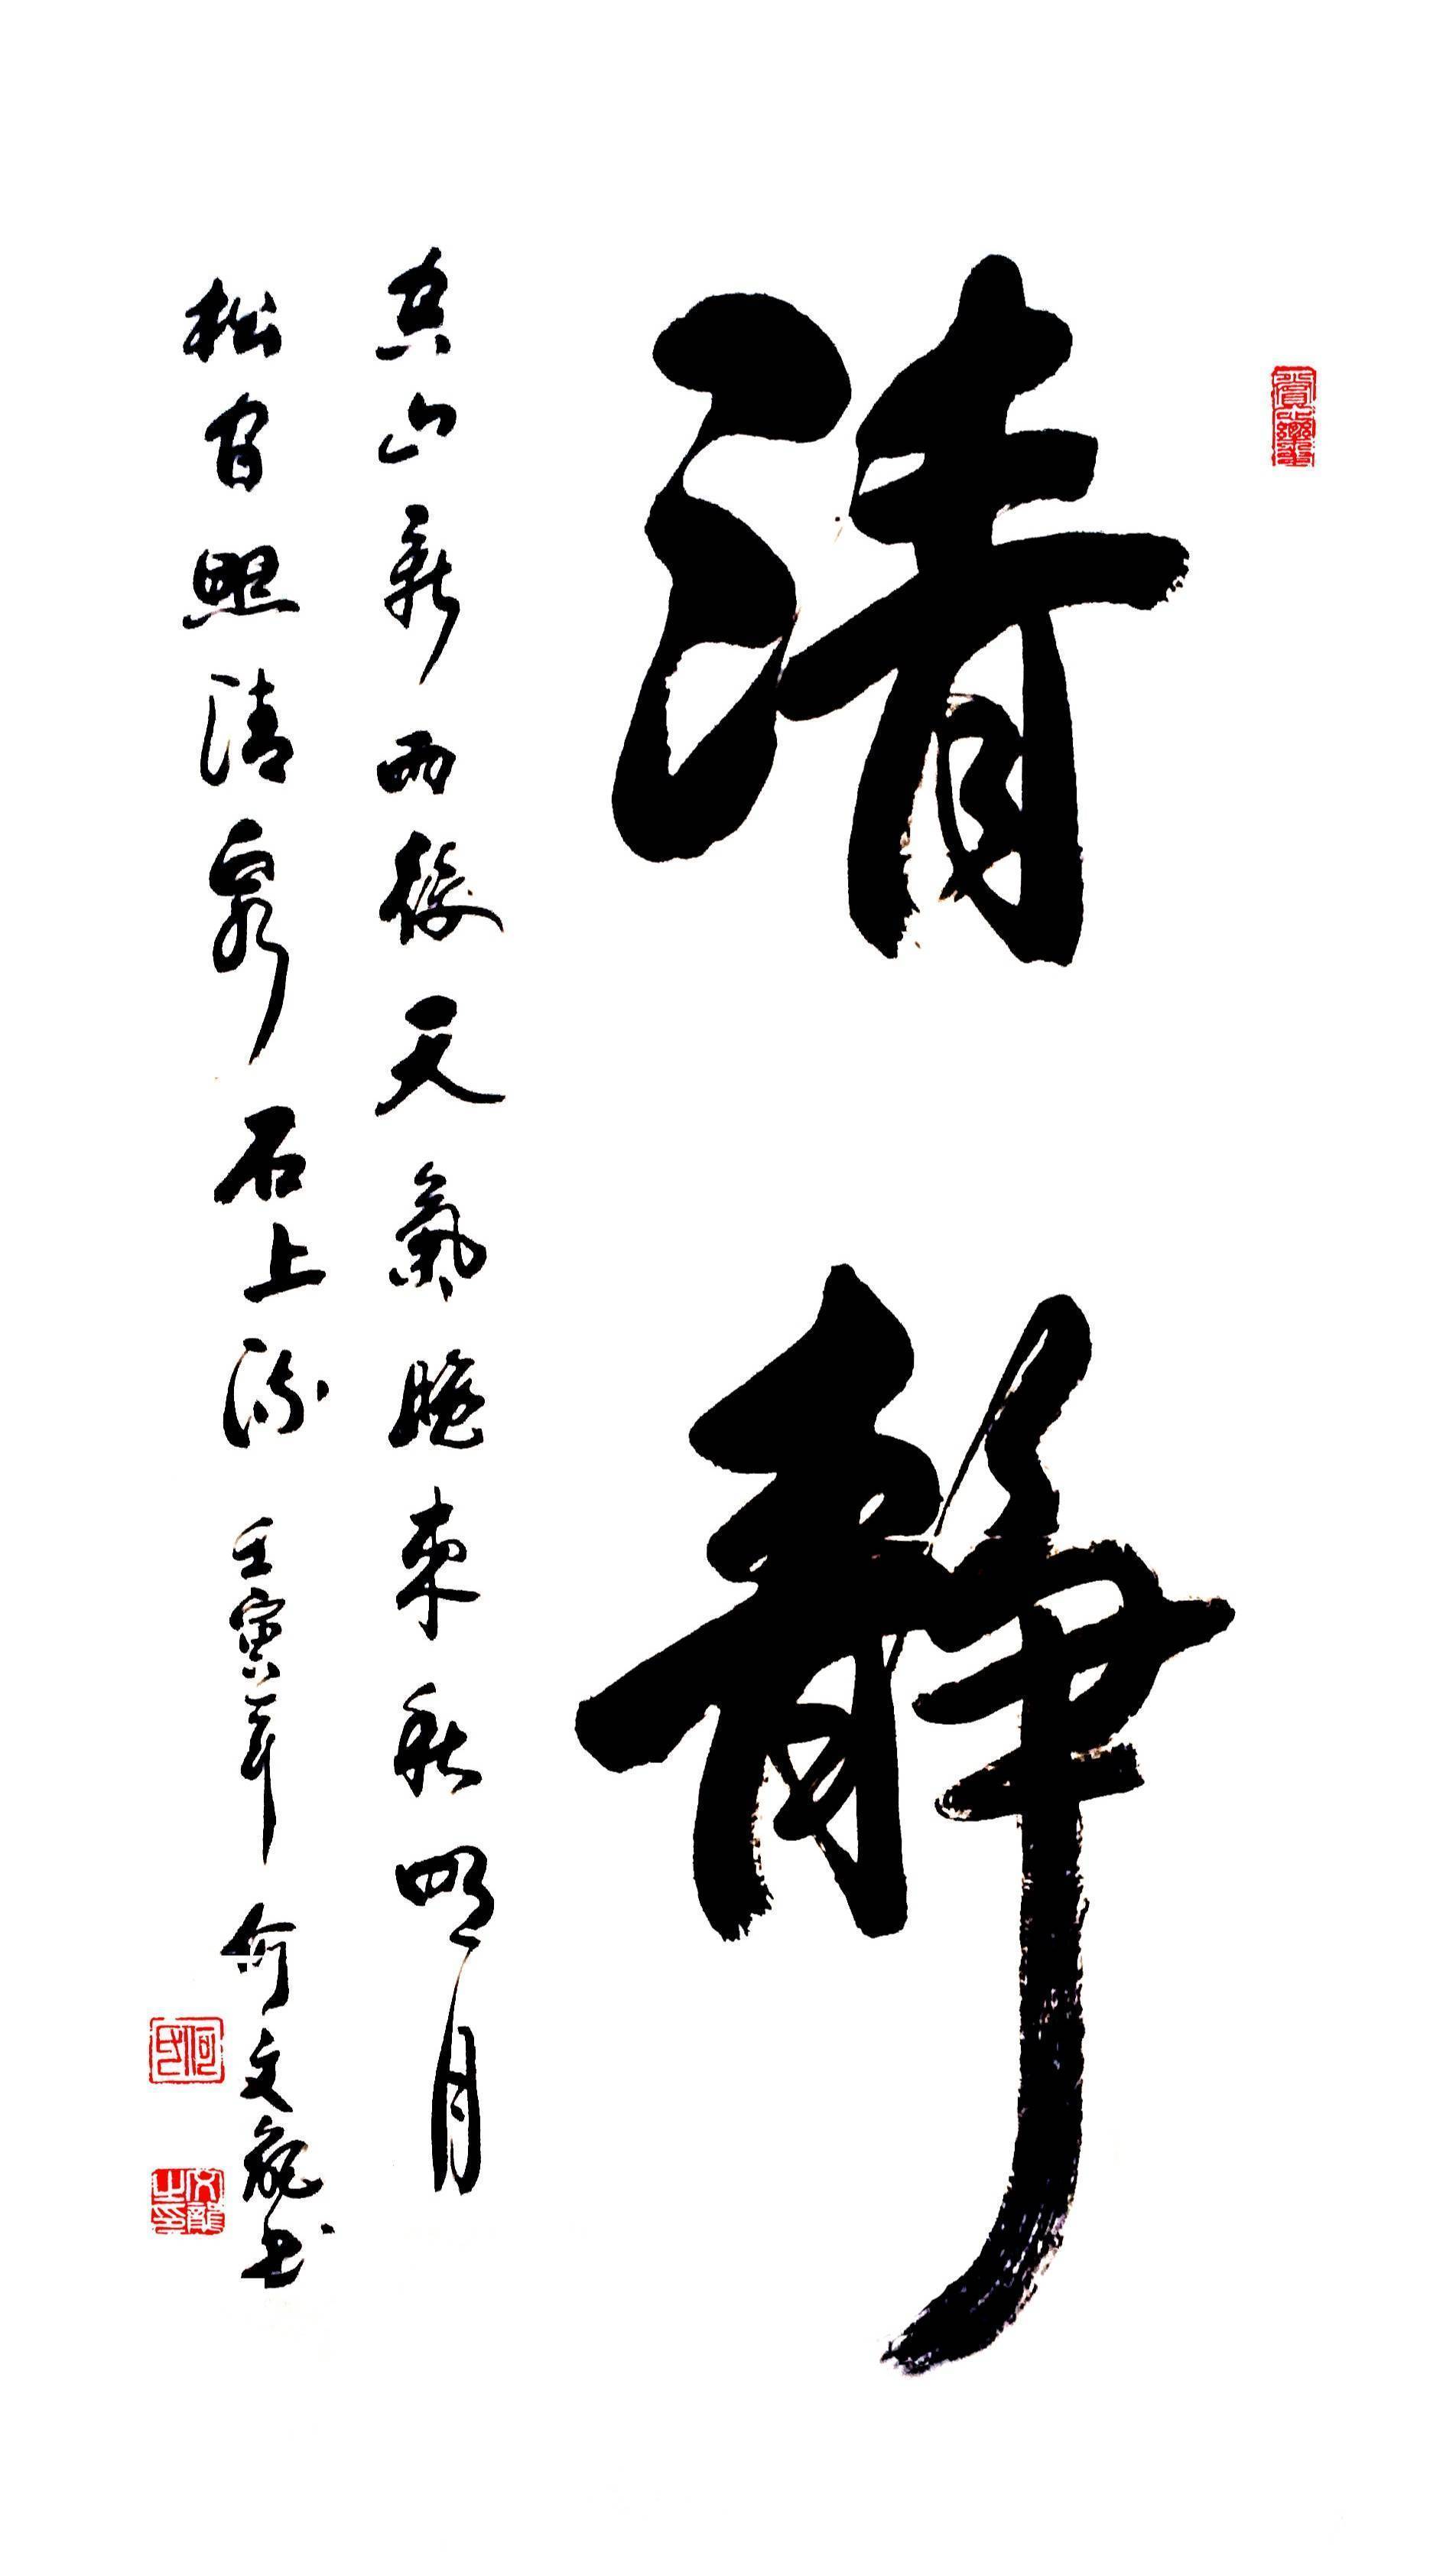 清靜
空山新雨後天氣晚來秋明月
松間照清泉石上流壬寅年何文龍书
何氏
文龍之印